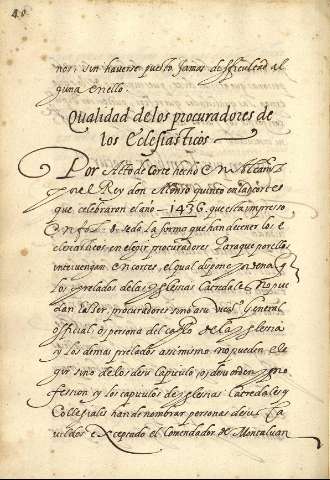 40
nos, sin haverse puesto jamas difficultad al
guna en ello.
Qualidad de los procuradores de
los Eclesiasticos
Por Acto de Corte hecho en Alcañiz
por el Rey don Alonso quinto en las cortes
que celebraron el año 1436. que esta impreso
en fol. 8. se da la forma que han de tener los e
clesiasticos en elegir procuradores Para que por ellos
intervengan en cortes, el qual dispone y ordena q
los prelados de las yglesias Catredales No pue
dan hazer procuradores sino a su vicario General
official, o persona del cap.lo de la yglesia
y los demas prelados assi mismo no pueden ele
gir sino de los de su Capitulo, o de su orden y pro
fession y los capitulos de yglesias Catredales y
Collegiales han de nombrar personas de sus Ca
pitulos exceptado el Comendador de Montalvan